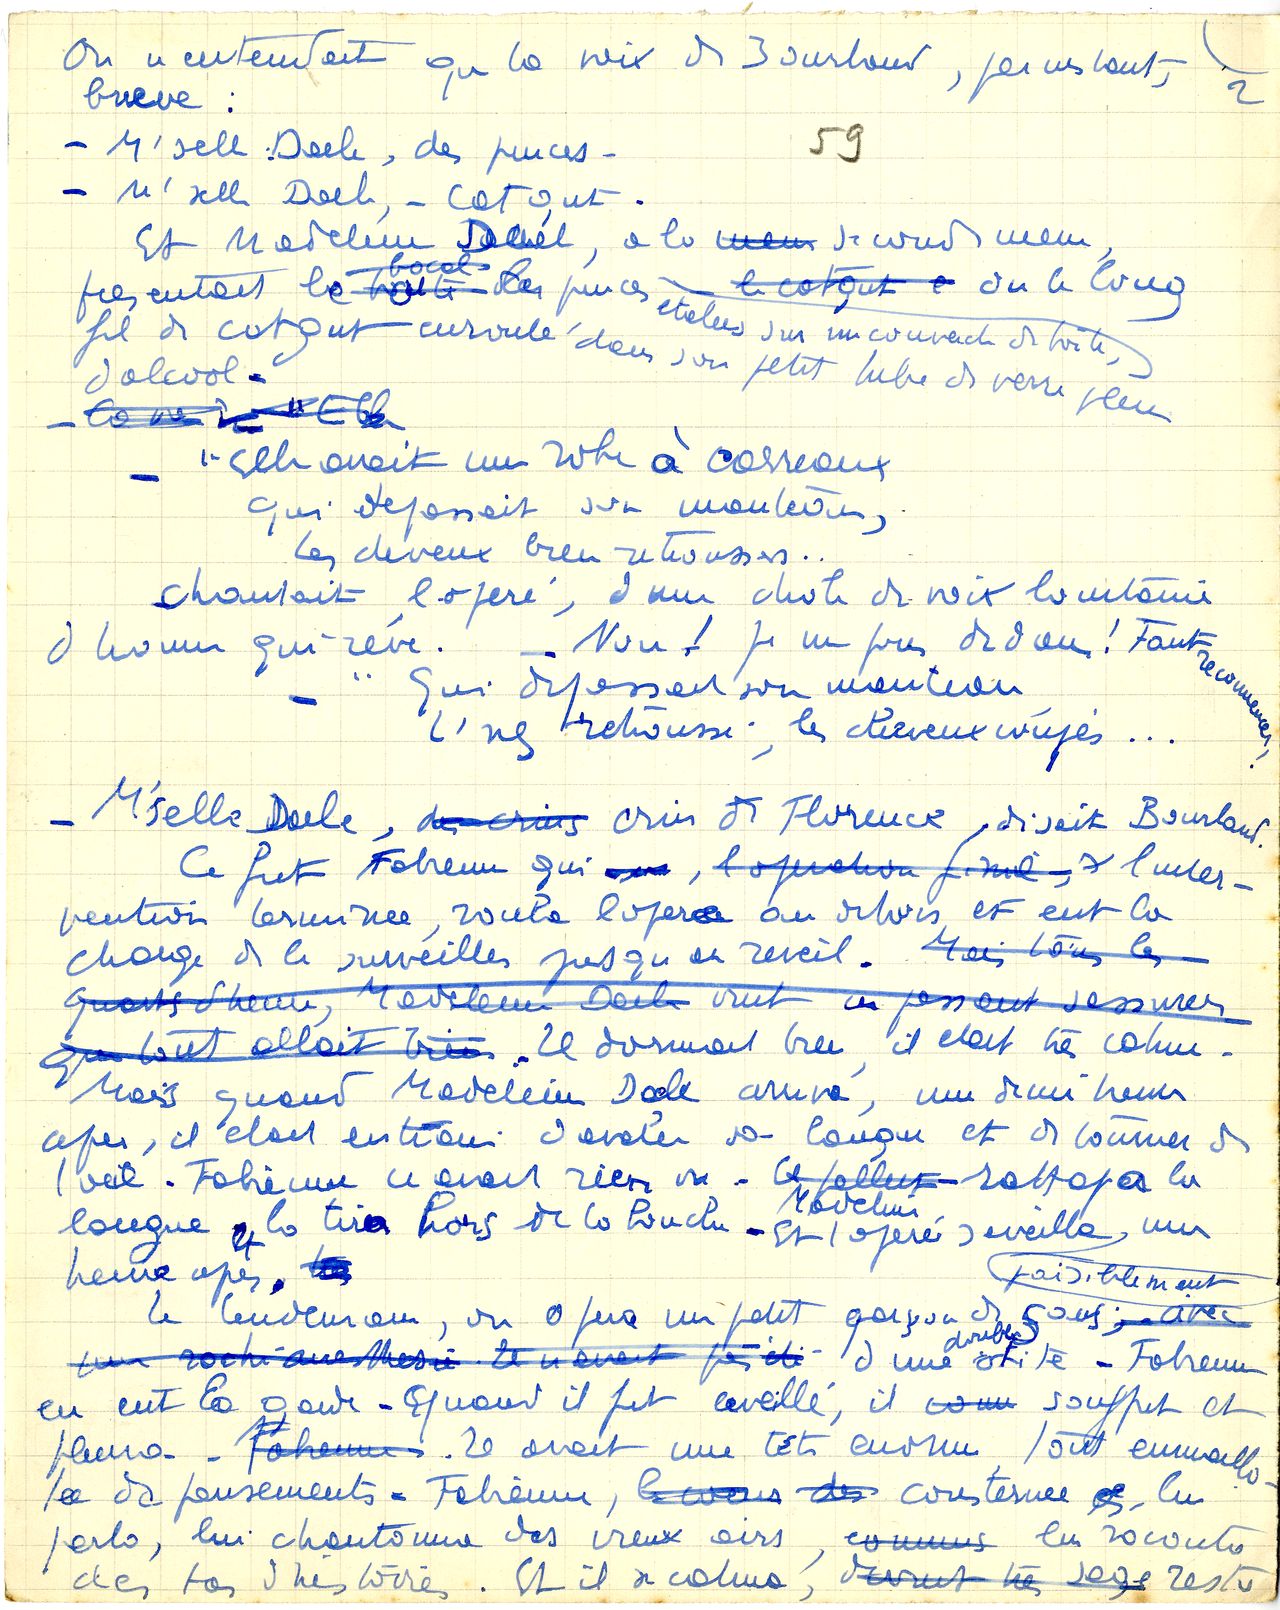 On n'entendait que la voix de Bourland, par instant,
2
brève :
59
- M'selle Daele, des pinces -
- M'selle Daele, - Catgut.
Et Madeleine Daele, à la seconde même,
présentait les pinces étalées sur un couvercle de boîte, ou le long
fil de catgut enroulé dans son petit tube de verre plein
d'alcool -
- "Elle avait une robe à carreaux
qui dépassait son manteau,
les cheveux bien retroussés..
chantait l'opéré, d'une drôle de voix lointaine
d'homme qui rêve. - Non! je ne suis pas dedans! Faut recommencer.
- " Qui dépassait son manteau
L' nez retroussé, les cheveux coupés ...
- M'selle Daele, des crins crins de Florence, disait Bourland.
Ce fut Fabienne qui , l'opération finie, l'inter-
vention terminée, roula l'opéré au dehors et eut la
charge de le surveiller jusqu'au réveil. Mais tous les
quarts d'heure, Madeleine Daele vint en passant s'assurer
que tout allait bien. Il dormait bien, il était très calme -
Mais quand Madeleine Daele arriva, une demi heure
après, il était en train d'avaler sa langue et de tourner de
l'oeil - Fabienne n'avait rien vu - Madeleine rattrapa la
langue et la tira hors de la bouche - Et l'opéré s'éveilla, une
heure après, paisiblement
Le lendemain, on opéra un petit garçon de 5 ans, avec
d'une double otite - Fabienne
en eut la garde - Quand il fut éveillé, il souffrit et
pleura - Fabienne. Il avait une tête énorme, tout emmaillo-
tée de pansements - Fabienne, consternée, lui
parla, lui chantonna des vieux airs, comme lui raconta
des tas d'histoires. Et il se calma, devint très sage resta